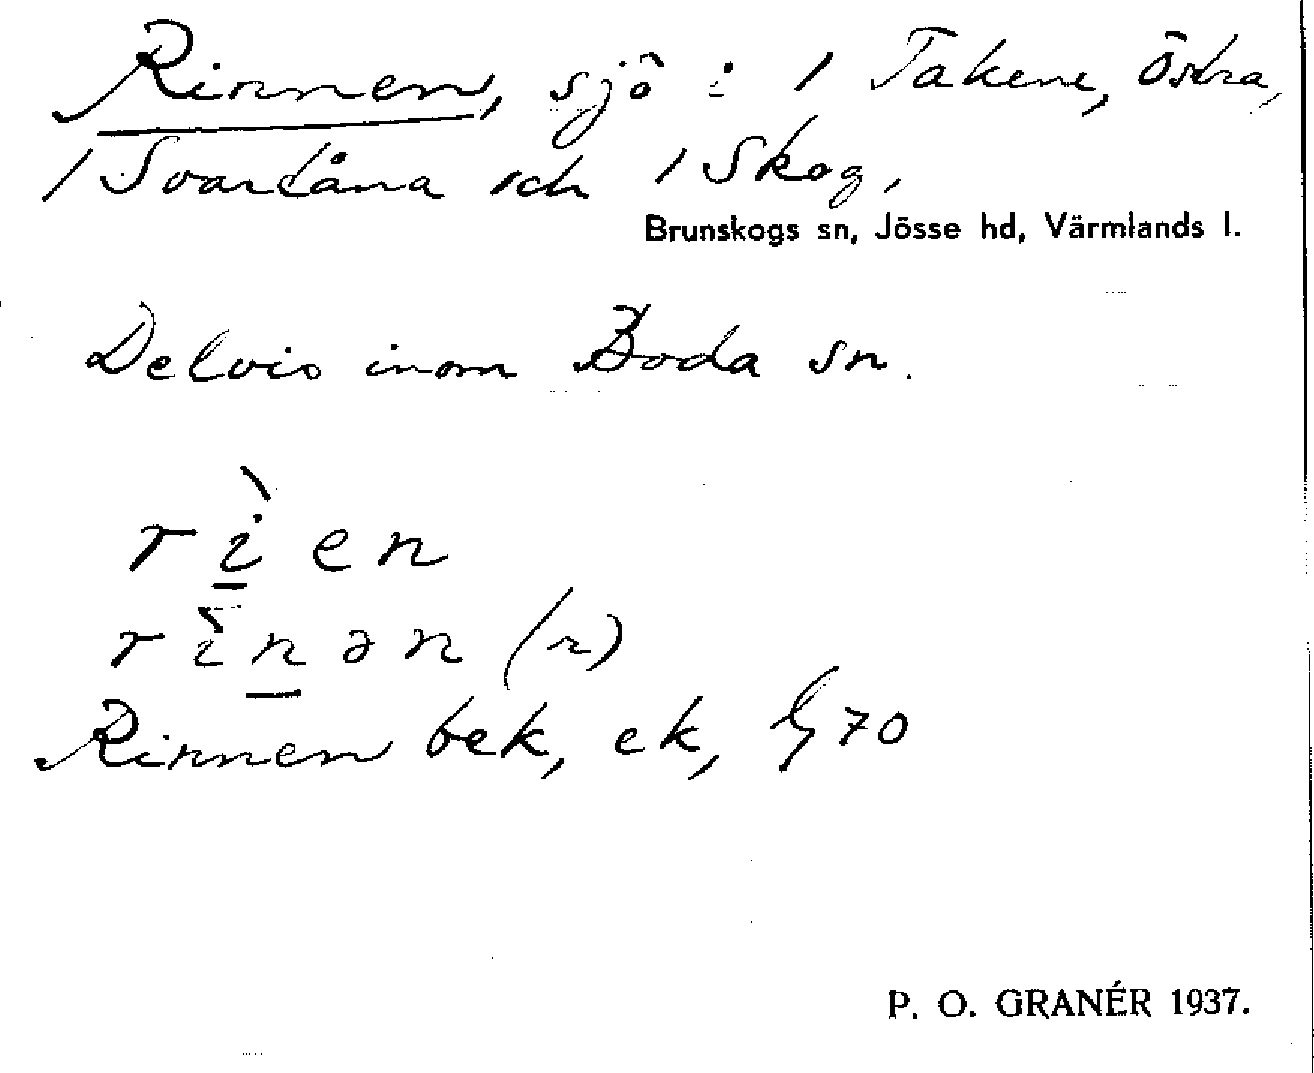 Rinnen, sjö i 1 Takene, Östra,
1 Svartåna och 1 Skog,
Brunskogs sn, Jösse hd, Värmlands l.
Delvis inom Boda sn.
rı̀en
rı̀nən (n)
Rinnen bek, ek, G 70
P. O. GRANÉR 1937.